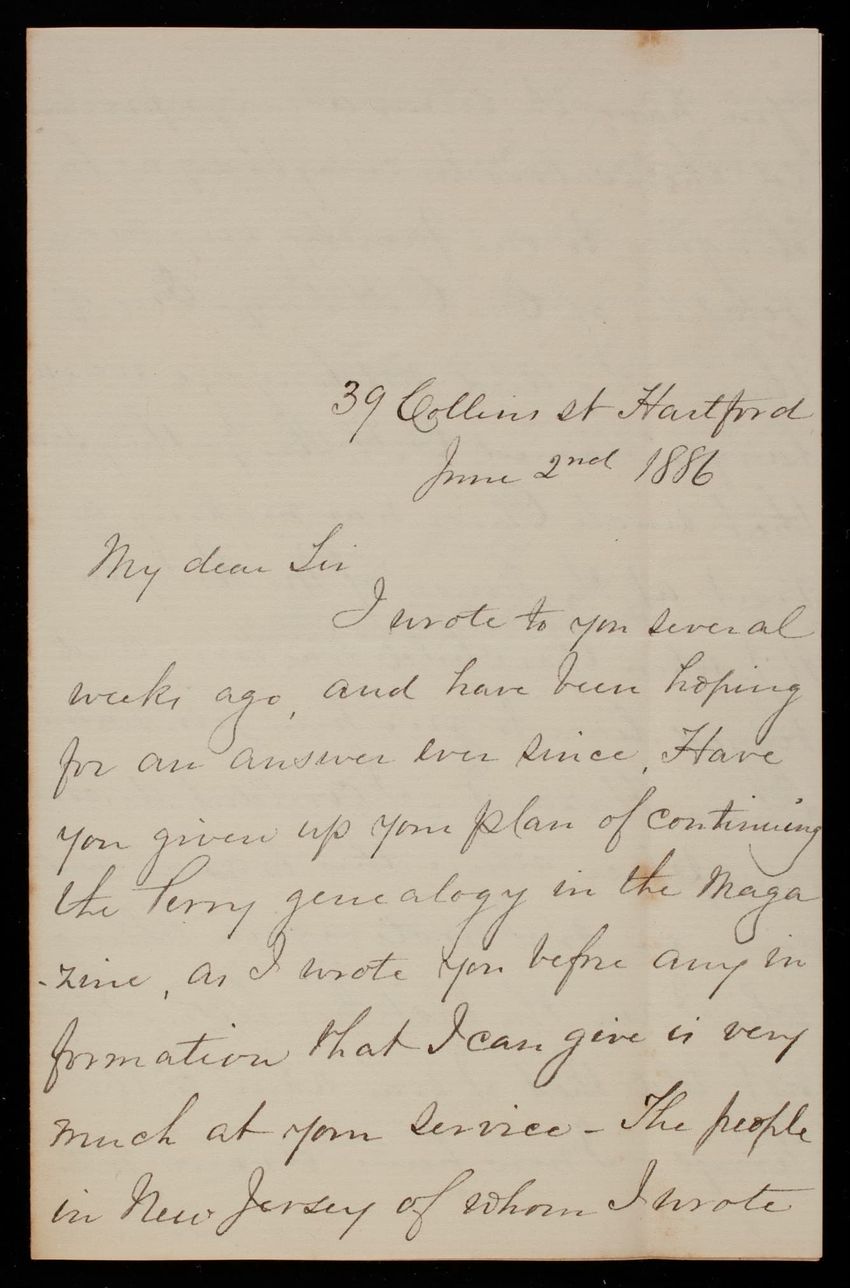 39 Collins st Hartford
June 2nd 1886
My dear Sir
I wrote to you several
weeks ago, and have been hoping
for an answer ever since. Have
you given up your plan of continuing
the Perry genealogy in the Maga
-zine, as I wrote you before any in
formation that I can give is very
much at your service - The people
in New Jersey of whom I wrote